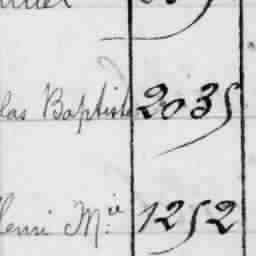 las Baptiste 2035
Henri M.ie 1252